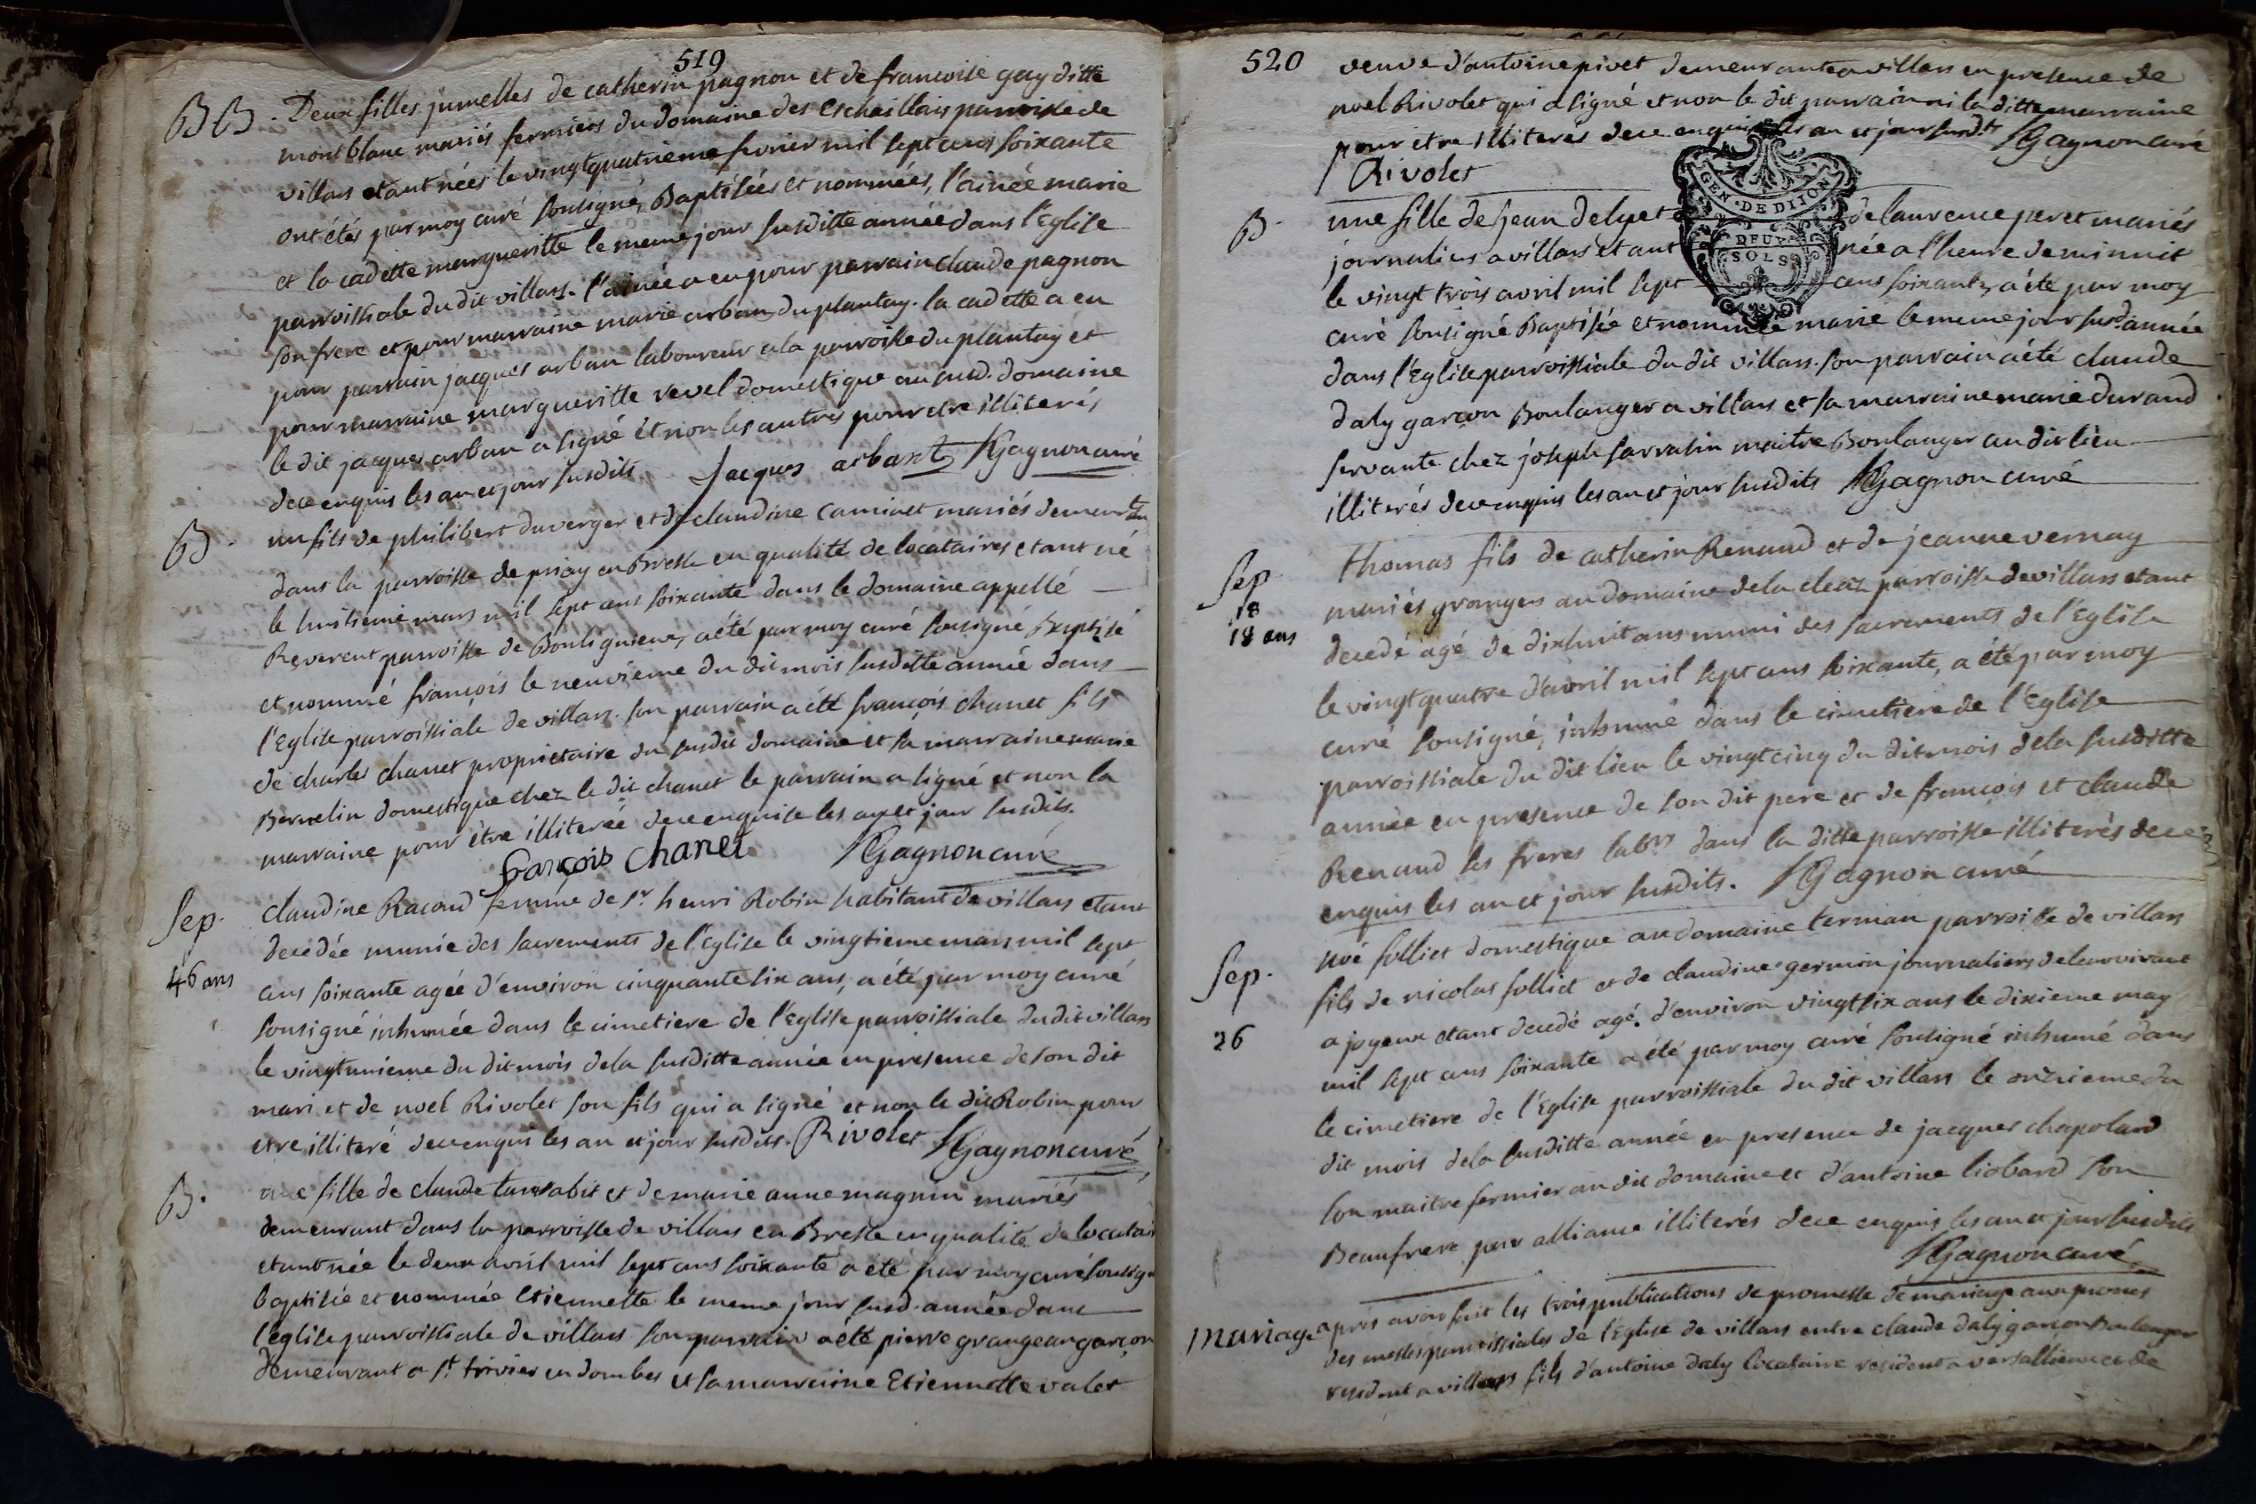 519
BB. Deux filles jumelles de catherin pagnon et de francoise gay ditte
montblanc mariés fermiers du domaine des Eschaillais parroisse de
villars etant nées le vingtquatrieme fevrier mil sept cens soixante
ont étés par moy curé sousigné, Baptisées et nommées, l'ainée marie
et la cadette margueritte le meme jour susditte année dans l'Eglise
parroissiale du dit villars. l'ainée a eu pour parrain claude pagnon
son frere et pour marraine marie arban du plantay. la cadette a eu
pour parrain jacques arban laboureur a la parroisse du plantay et
pour marraine margueritte revel domestique au susd. domaine
le dit jacques arban a signé et non les autres pour etre illiterés
dece enquis les an et jour susdits Jacques arbant Gagnon curé
B. un fils de philibert duverger et de claudine caminet mariés demeurtn
dans la parroisse de priay en Bresse en qualité de locataires etant né
le huitieme mars mil sept cens soixante dans le domaine appellé
Reverent parroisse de Bouligneux, a été par moy curé sousigné Baptisé
et nommé françois le neuvieme du dit mois susditte année dans
l'Eglise parroissiale de villars. son parrain a été françois chanet fils
de charles chanet proprietaire du susdit domaine et sa marraine marie
Bernelin domestique chez le dit chanet le parrain a signé et non la
marraine pour être illiterée dece enquise les an et jour susdits.
françois Chanet Gagnon curé
Sep. claudine Racoud femme de sr henri Robin habitant de villars etant
decedée munie des sacrements de l'Eglise le vingtieme mars mil sept
46 ans cens soixante agée d'environ cinquante six ans, a été par moy curé
sousigné inhumée dans le cimetiere de l'Eglise parroissiale du dit villars
le vingtunieme du dit mois dela susditte année en presence de son dit
mari et de noel Rivolet son fils qui a signé et non le dit Robin pour
etre illiteré dece enquis les an et jour susdits. Rivolet Gagnon curé
B. une fille de claude et de marie anne magnin mariés
demeurant dans la parroisse de villars en Bresse en qualité de locatair
etant née le deux avril mil sept cens soixante a été par moy curé sousigné
Baptisée et nommée Etiennette le meme jour susd. année dans
l'eglise parroissiale de villars son parrain a été pierre grangean garçon
demeurant a st trivier en dombes et sa marraine Etiennette valet
520 veuve d'antoine pivet demeurante a villars en presence de
noel Rivolet qui a signé et non le dit parrain ni la ditte marraine
pour etre illiterés dece enquis les an et jour susdts Gagnon curé
Rivolet
GEN. DE DIJON
DEUX
SOLS
B. une fille de jean delyet et de laurence peret mariés
journaliers a villars etant née a l'heure de minuit
le vingt trois avril mil sept cens soixante, a été par moy
curé sousigné Baptisée et nommée marie le meme jour susd. année
dans l'Eglise parroissiale du dit villars. son parrain a été claude
daly garçon Boulanger a villars et sa marraine marie durand
servante chez joseph sarrasin maitre Boulanger au dit lieu
illiterés dece enquis les an et jour susdits Gagnon curé
Sep. thomas fils de catherin Renaud et de jeanne vernay
18 mariés grangers au domaine dela cleaz parroisse de villars etant
18 ans decedé agé de dixhuit ans muni des sacrements de l'Eglise
le vingtquatre d'avril mil sept cens soixante, a été par moy
curé sousigné, inhumé dans le cimetiere de l'Eglise
parroissiale du dit lieu le vingtcinq du dit mois dela susditte
année en presence de son dit pere et de françois et claude
Renaud ses freres labrs dans la ditte parroisse illiterés dece
enquis les an et jour susdits. Gagnon curé
Sep. noé folliet domestique au domaine terman parroisse de villars
fils de nicolas folliet et de claudine germin journaliers de leur vivant
26 a joyeux etant decedé agé. d'environ vingtsix ans le dixieme may
mil sept cens soixante a été par moy curé sousigné inhumé dans
le cimetiere de l'Eglise parroissiale du dit villars le onzieme du
dit mois dela susditte année en presence de jacques chapoland
son maitre fermier au dit domaine et d'antoine liobard son
Beaufrere par alliance illiterés dece enquis les an et jour susdits
Gagnon curé
Mariage apres avoir fait les trois publications de promesse de mariage aux prones
des messes parroissiales de l'Eglise de villars entre claude daly garçon Boulanger
resident a villars fils d'antoine daly locataire resident a versailleux et de